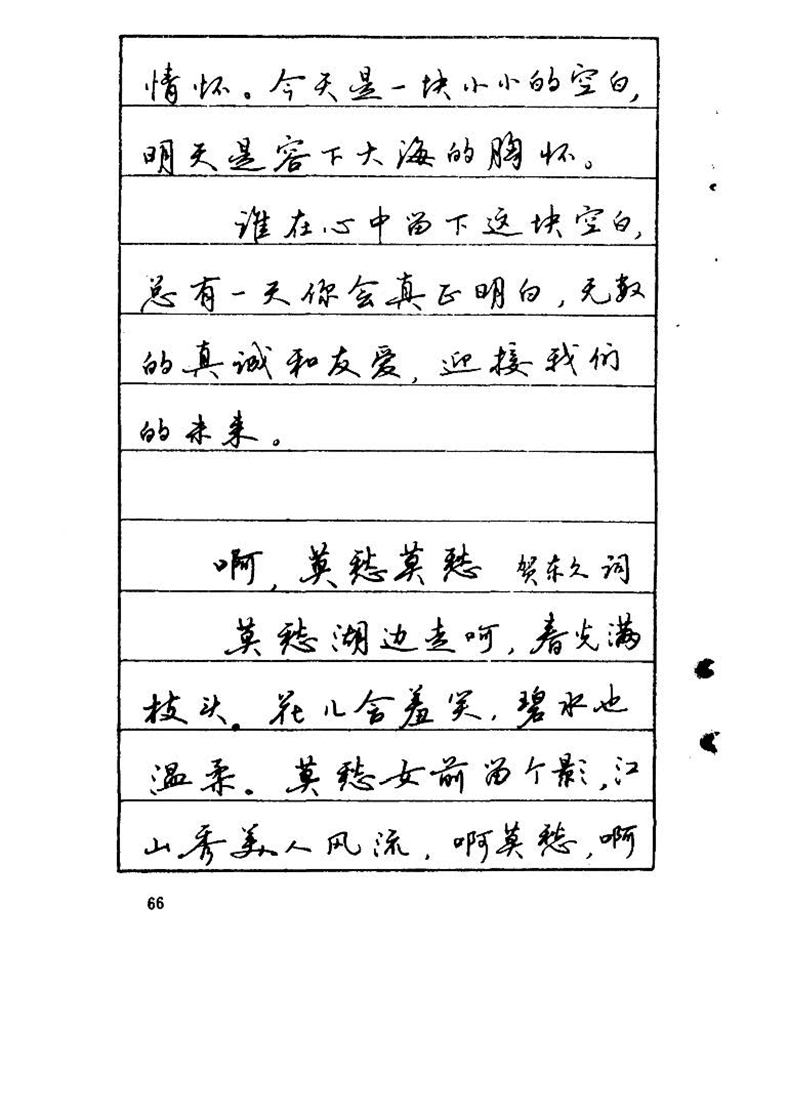 情怀。今天是一块小小的空白,
明天是容下大海的胸怀。
谁在心中留下这块空白,
总有一天你会真正明白,无数
的真诚和友爱,迎接我们
的未来。
啊,莫愁莫愁 贺东久词
莫愁湖边走呵,春光满
枝头。花儿含羞笑,碧水也
温柔。莫愁女前留个影,江
山秀美人风流,啊莫愁,啊
66